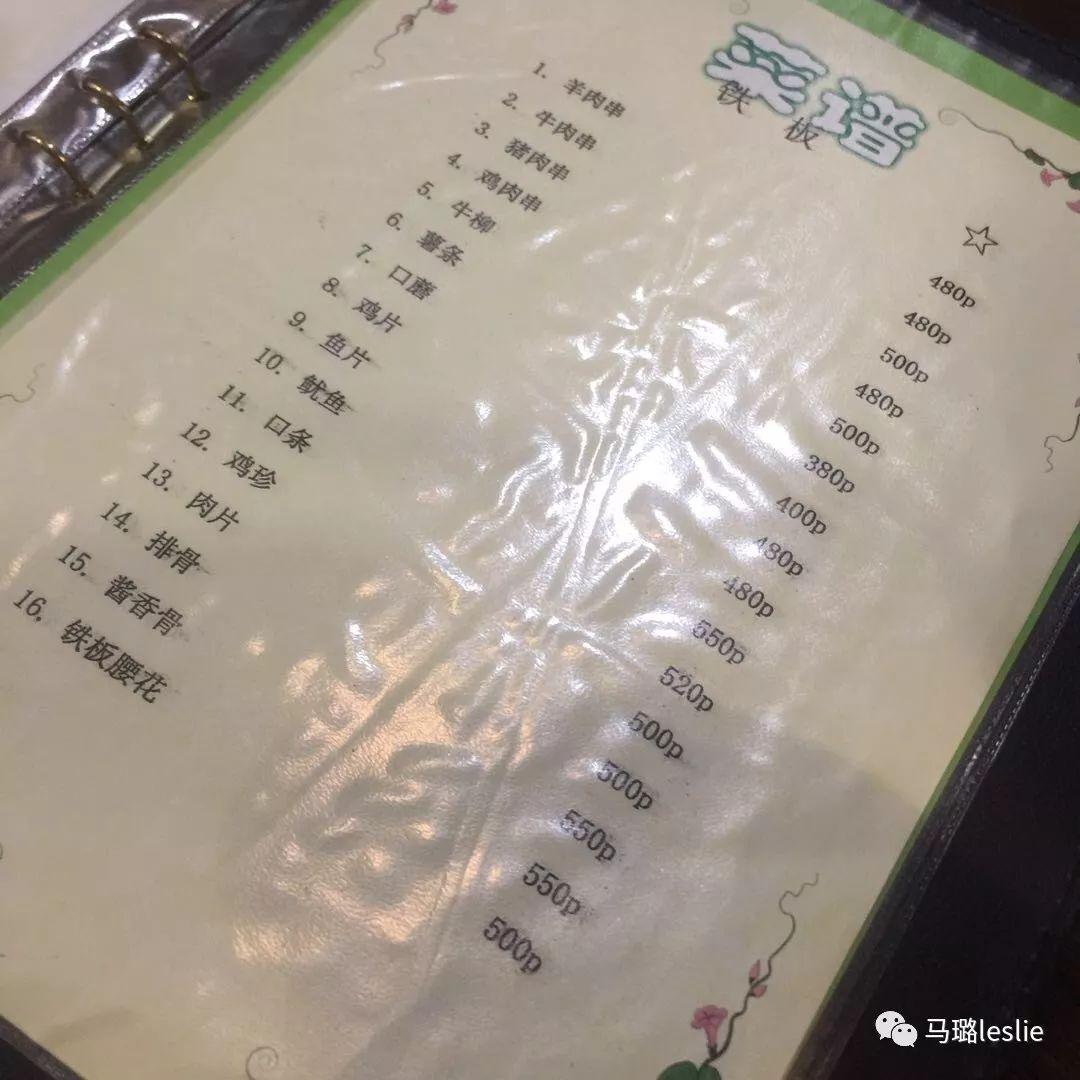 菜谱
铁 板
☆
1. 羊肉串 480p
2. 牛肉串 480p
3. 猪肉串 500p
4. 鸡肉串 480p
5. 牛柳 500p
6. 薯条 380p
7. 口蘑 400p
8. 鸡片 480p
9. 鱼片 480p
10. 鱿鱼 550p
11. 口条 520p
12. 鸡珍 500p
13. 肉片 500p
14. 排骨 550p
15. 酱香骨 550p
16. 铁板腰花 500p
马璐leslie